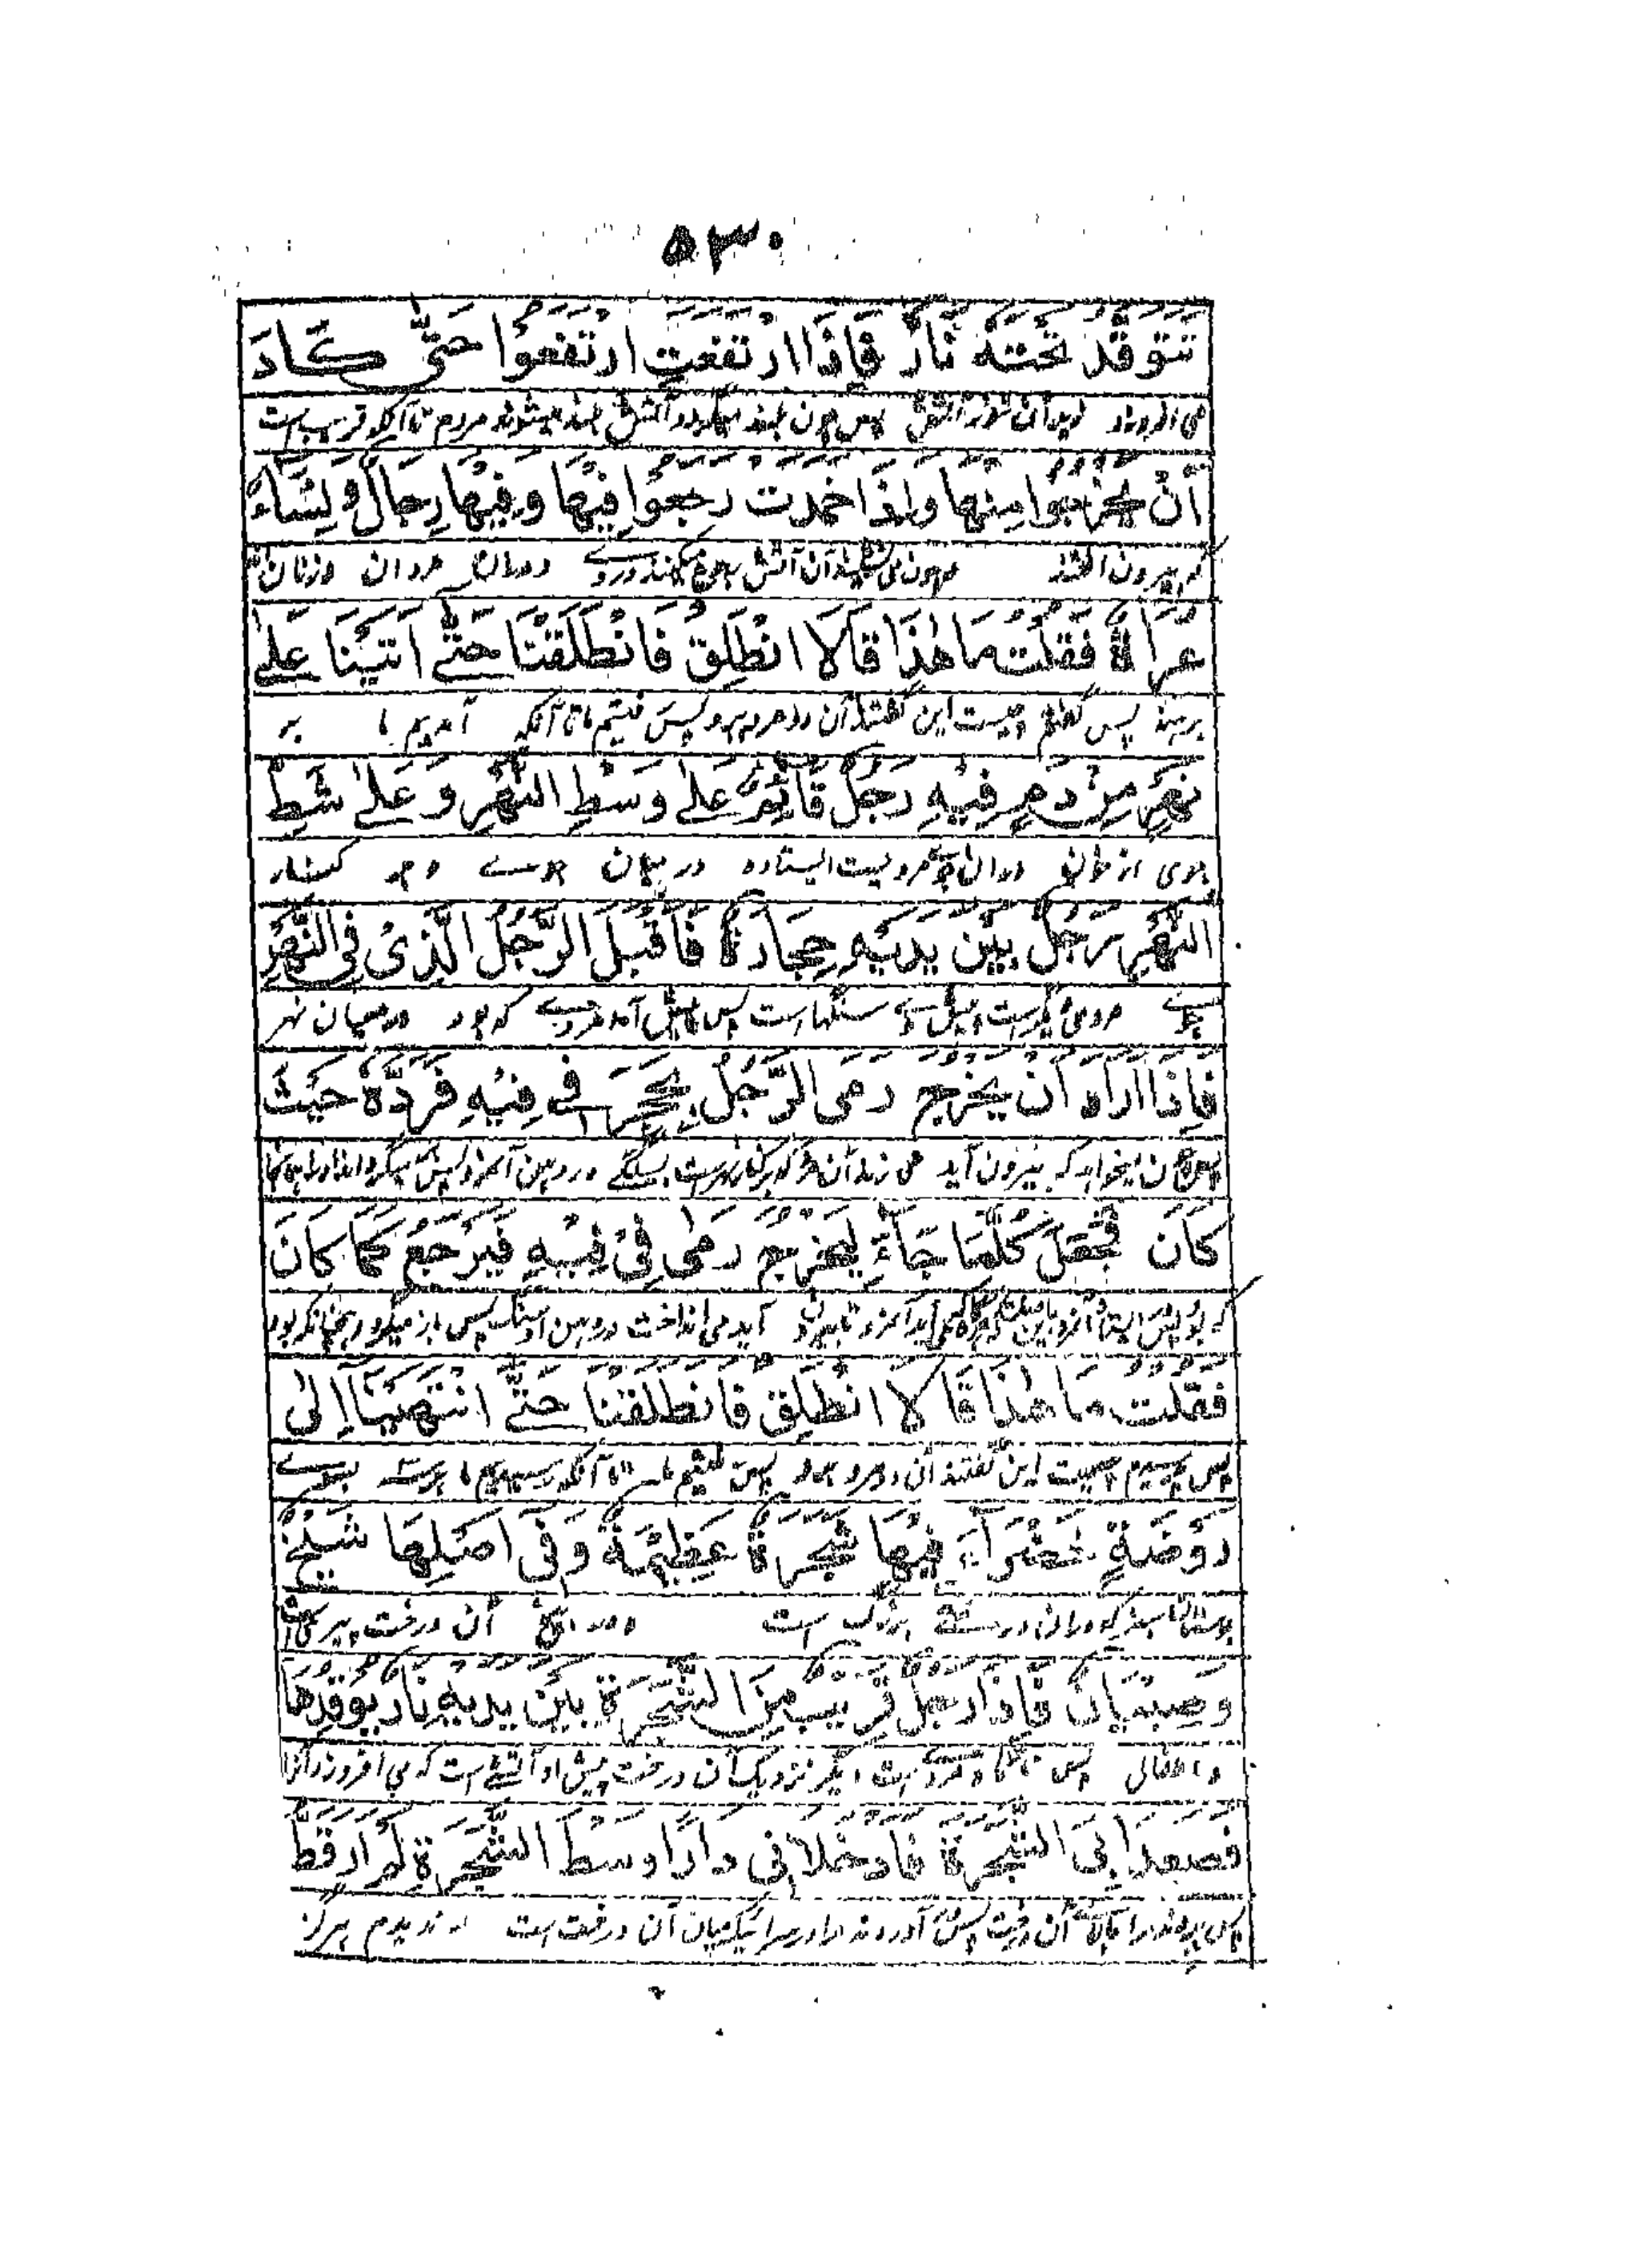 ۵۳۰
تَتَوَقَّدُ تَحْتَهٗ نَارٌ فَاِذَا ارْتَفَعَتِ ارْتَفَعُوْا حَتّٰى كَادَ
می افروزد زیر آن پس چون بلند میشوند مردم تا آنکه قریب است
اَنْ يَخْرُجُوْا مِنْهَا وَاِذَا خَمَدَتْ رَجَعُوْا فِيْهَا وَفِيْهَا رِجَالٌ وَنِسَاءٌ
که بیرون افتند آن آتش رجوع میکنند دروے مردان وزنان
عُرَاةٌ فَقُلْتُ مَا هٰذَا قَالَا انْطَلِقْ فَانْطَلَقْنَا حَتّٰى اَتَيْنَا عَلٰى
برهنه پس گفتم چیست این گفتند آن دو مرد برو پس رفتیم ما تا آنکه آمدیم ما بر
نَهْرٍ مِنْ دَمٍ فِيْهِ رَجُلٌ قَائِمٌ عَلٰى وَسْطِ النَّهْرِ وَعَلٰى شَطِّ
جوی از خون دران مردیست ایستاده در میان جوے و بر کنار
النَّهْرِ رَجُلٌ بَيْنَ يَدَيْهِ حِجَارَةٌ فَاَقْبَلَ الرَّجُلُ الَّذِىْ فِى النَّهْرِ
جوے مردی دیگرست پیش وے سنگها است پس پیش آمد مردے که بود در میان نهر
فَاِذَا اَرَادَ اَنْ يَخْرُجَ رَمَى الرَّجُلُ بِحَجَرٍ فِىْ فِيْهِ فَرَدَّهٗ حَيْثُ
پس چون میخواهد که بیرون آید می زند آن مرد که بر کنار نهرست بسنگے در دهن آنمرد پس
كَانَ فَجَعَلَ كُلَّمَا جَاءَ لِيَخْرُجَ رَمٰى فِىْ فِيْهِ فَيَرْجِعُ كَمَا كَانَ
که بود پس آید می انداخت در دهن او سنگ پس باز میگردد همچنانکه بود
فَقُلْتُ مَا هٰذَا قَالَا انْطَلِقْ فَانْطَلَقْنَا حَتّٰى انْتَهَيْنَا اِلٰى
پس پرسیدم چیست این گفتند آن دو مرد برو پس رفتیم ما تا آنکه رسیدیم ما بسوے
رَوْضَةٍ خَضْرَاءَ فِيْهَا شَجَرَةٌ عَظِيْمَةٌ وَفِىْ اَصْلِهَا شَيْخٌ
سبز که دران درختے بزرگ است و در بیخ آن درخت پیر
وَصِبْيَانٌ فَاِذَا رَجُلٌ قَرِيْبٌ مِنَ الشَّجَرَةِ بَيْنَ يَدَيْهِ نَارٌ يُوْقِدُهَا
و اطفالی پس ناگاه مردے است دیگر نزدیک آن درخت پیش او آتشے است که می افروزد آنرا
فَصَعِدَا بِىَ الشَّجَرَةَ فَادْخَلَانِىْ دَارًا وَسْطَ الشَّجَرَةِ لَمْ اَرَ قَطُّ
پس بردند مرا بالاے آن درخت پس آوردند مرا در سرا میان آن درخت است که ندیدم هرگز